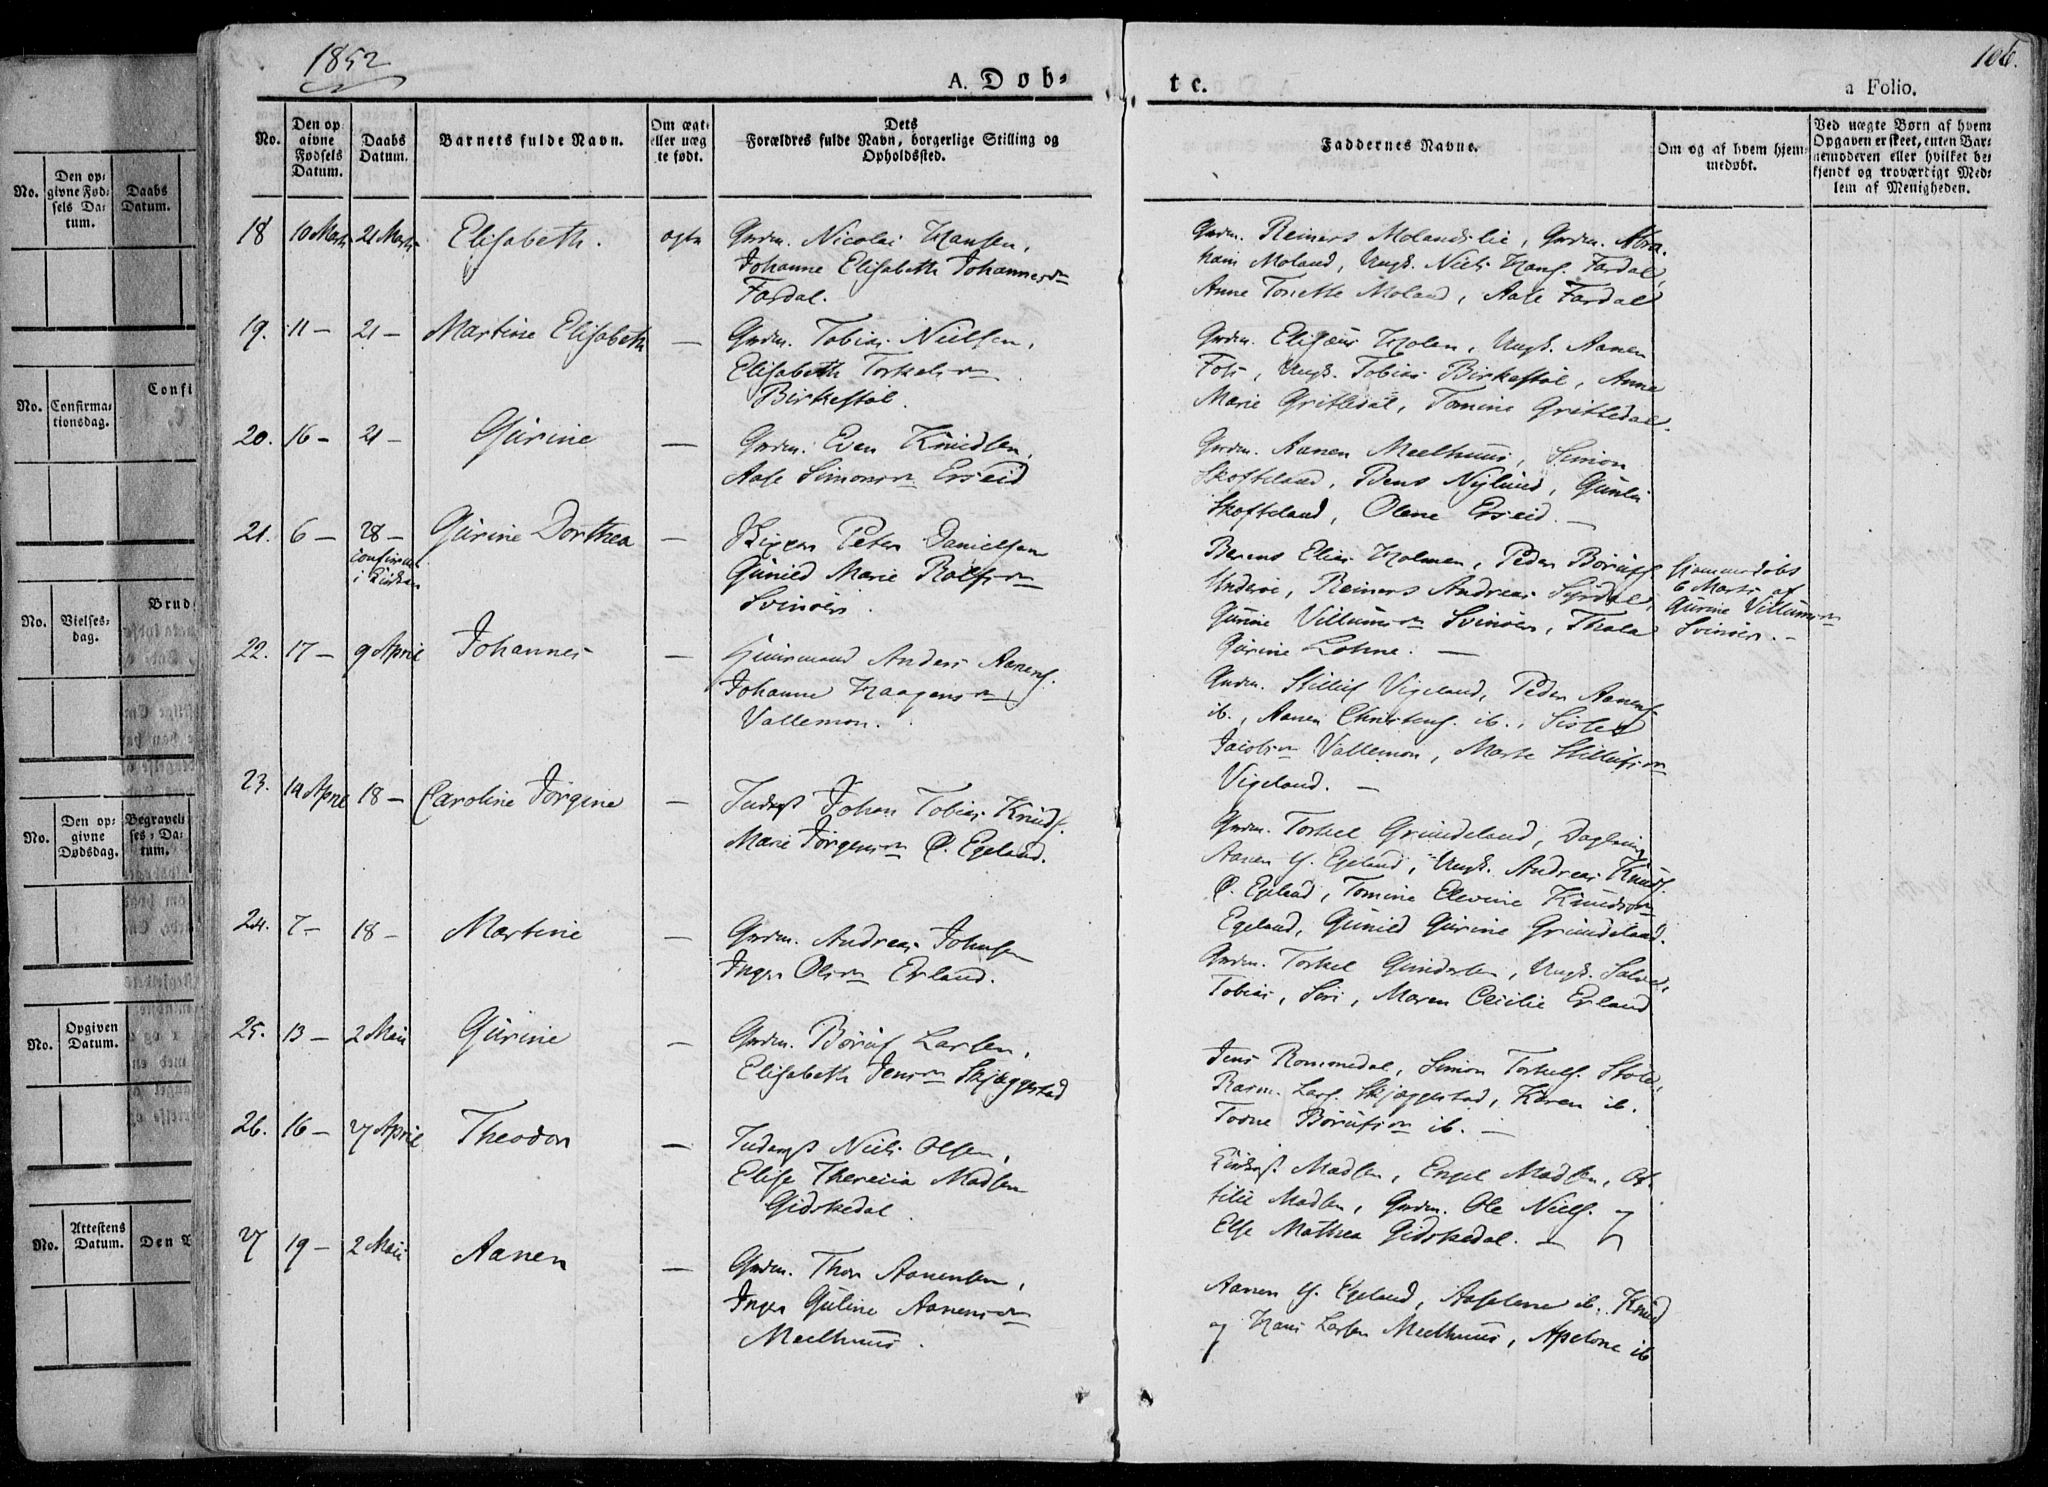 1852
A. Døb-
te.
106.
a Folio.
No.
Den op-
givne
Fødsels
Datum.
Daabs
Datum.
Barnets fulde Navn.
Om ægte
eller uæg
te født.
Dets
Forældres fulde Navn, borgerlige Stilling og
Opholdssted.
Faddernes Navne.
Om og af hvem hjem-
medøbt.
Ved uægte Børn af hvem
Opgaven er skeet, enten Bar-
nemoderen eller hvilket be-
kjendt og troværdigt Med-
lem af Menigheden.
18 10 Marts 21 Marts Elisabeth. ægte Grdm. Nicolai Hansen,
Johanne Elisabeth Johannesdr
Fardal.
Grdm. Reiners Molandslie, Grdm. Abra
ham Moland, Ungk. Niels Hans. Fardal,
Anne Tonette Moland, Aase Fardal
19. 11 – 21 – Martine Elisabeth — Grdm. Tobias Nielsen,
Elisabeth Torkelsdr
Birkestøl.
Grdm. Elisæus Holen, Ungk. Aanen
Foss, Ungk. Tobias Birkestøl, Anne
Marie Gritledal, Tomine Gritledal.
20. 16 – 21 – Gurine — Grdm. Even Knudsen,
Aase Simonsdr Erseid
Grdm. Aanen Meelhuus, Simon
Skofteland, Bens Nylund, Gunle
Skofteland, Olene Erseid. —
21. 6 – 28 – Gurine Dorthea — Skipper Peter Danielsen
confirmet
i Kirken
Gunild Marie Rolfsdr
Svinøer.
Berens Elias Holmen, Peder Børufs
Underøe, Reiners Andreas Syrdal,
Gurine Villumsdr Svinøer, Thala
Gurine Lohne. —
Hjemmedøbt
6 Marts af
Gurine Villumsdr
Svinøer. –
22. 17 – 9 April Johannes — Huusmand Anders Aanens.
Johanne Haagensdr,
Vallemon.
Grdm. Stilluf Vigeland, Peder Aanens.
ib., Aanen Christens. ib., Sisled
Jacobsdr Vallemon, Marte Stillufsdr
Vigeland. —
23. 14 April 18 – Caroline Jørgine — Inderst Johan Tobias Knuds.
Marie Jørgensdr Ø. Egeland.
Grdm. Torkel Grundeland, Dagl
Aanen Y. Egeland, Ungk. Andreas Knuds.
Ø. Egeland, Tomine Elevine Knudsdr
Egeland, Gunild Gurine Grundeland.
24. 7 – 18 – Martine — Grdm. Andreas Johnsen
Inger Olsdr Erland.
Grdm. Torkel Gundersen, Ungk. Salve,
Tobias, Siri, Maren Cecilie Erland
25. 13 – 2 Maii Gurine — Grdm. Børuf Larsen,
Elisabeth Jensdr Skjæggestad
Jens Rommedal, Simon Torkels. Støle,
Rasm. Lars. Skjæggestad, Karen ib.
Torne Børufsdr ib. —
26. 16 – 27 April Theodor — Inderst Niels Olsen,
Elise Theresia Madsen
Gidskedal.
Kirkesgr Madsen, Engel Madsen, Ot
tilie Madsen, Grdm. Ole Niels. og
Else Mathea Gidskedal. —
27 19 – 2 Maii Aanen — Grdm. Thor Aanensen,
Inger Guline Aanensdr
Meelhuus.
Aanen Y. Egeland, Aaselene ib. Knud
og Hans Larsen Meelhuus, Apelone ib
No.
Den op-
givne Fød-
sels Da-
tum.
Daabs
Datum.
Confi
No.
Confirma-
tionsdag.
Brud
No.
Vielses-
dag.
No.
Den op-
givne
Dødsdag.
Begravel-
ses-Da-
tum.
No.
Opgiven
Datum.
No.
Attestens
Datum.
Den